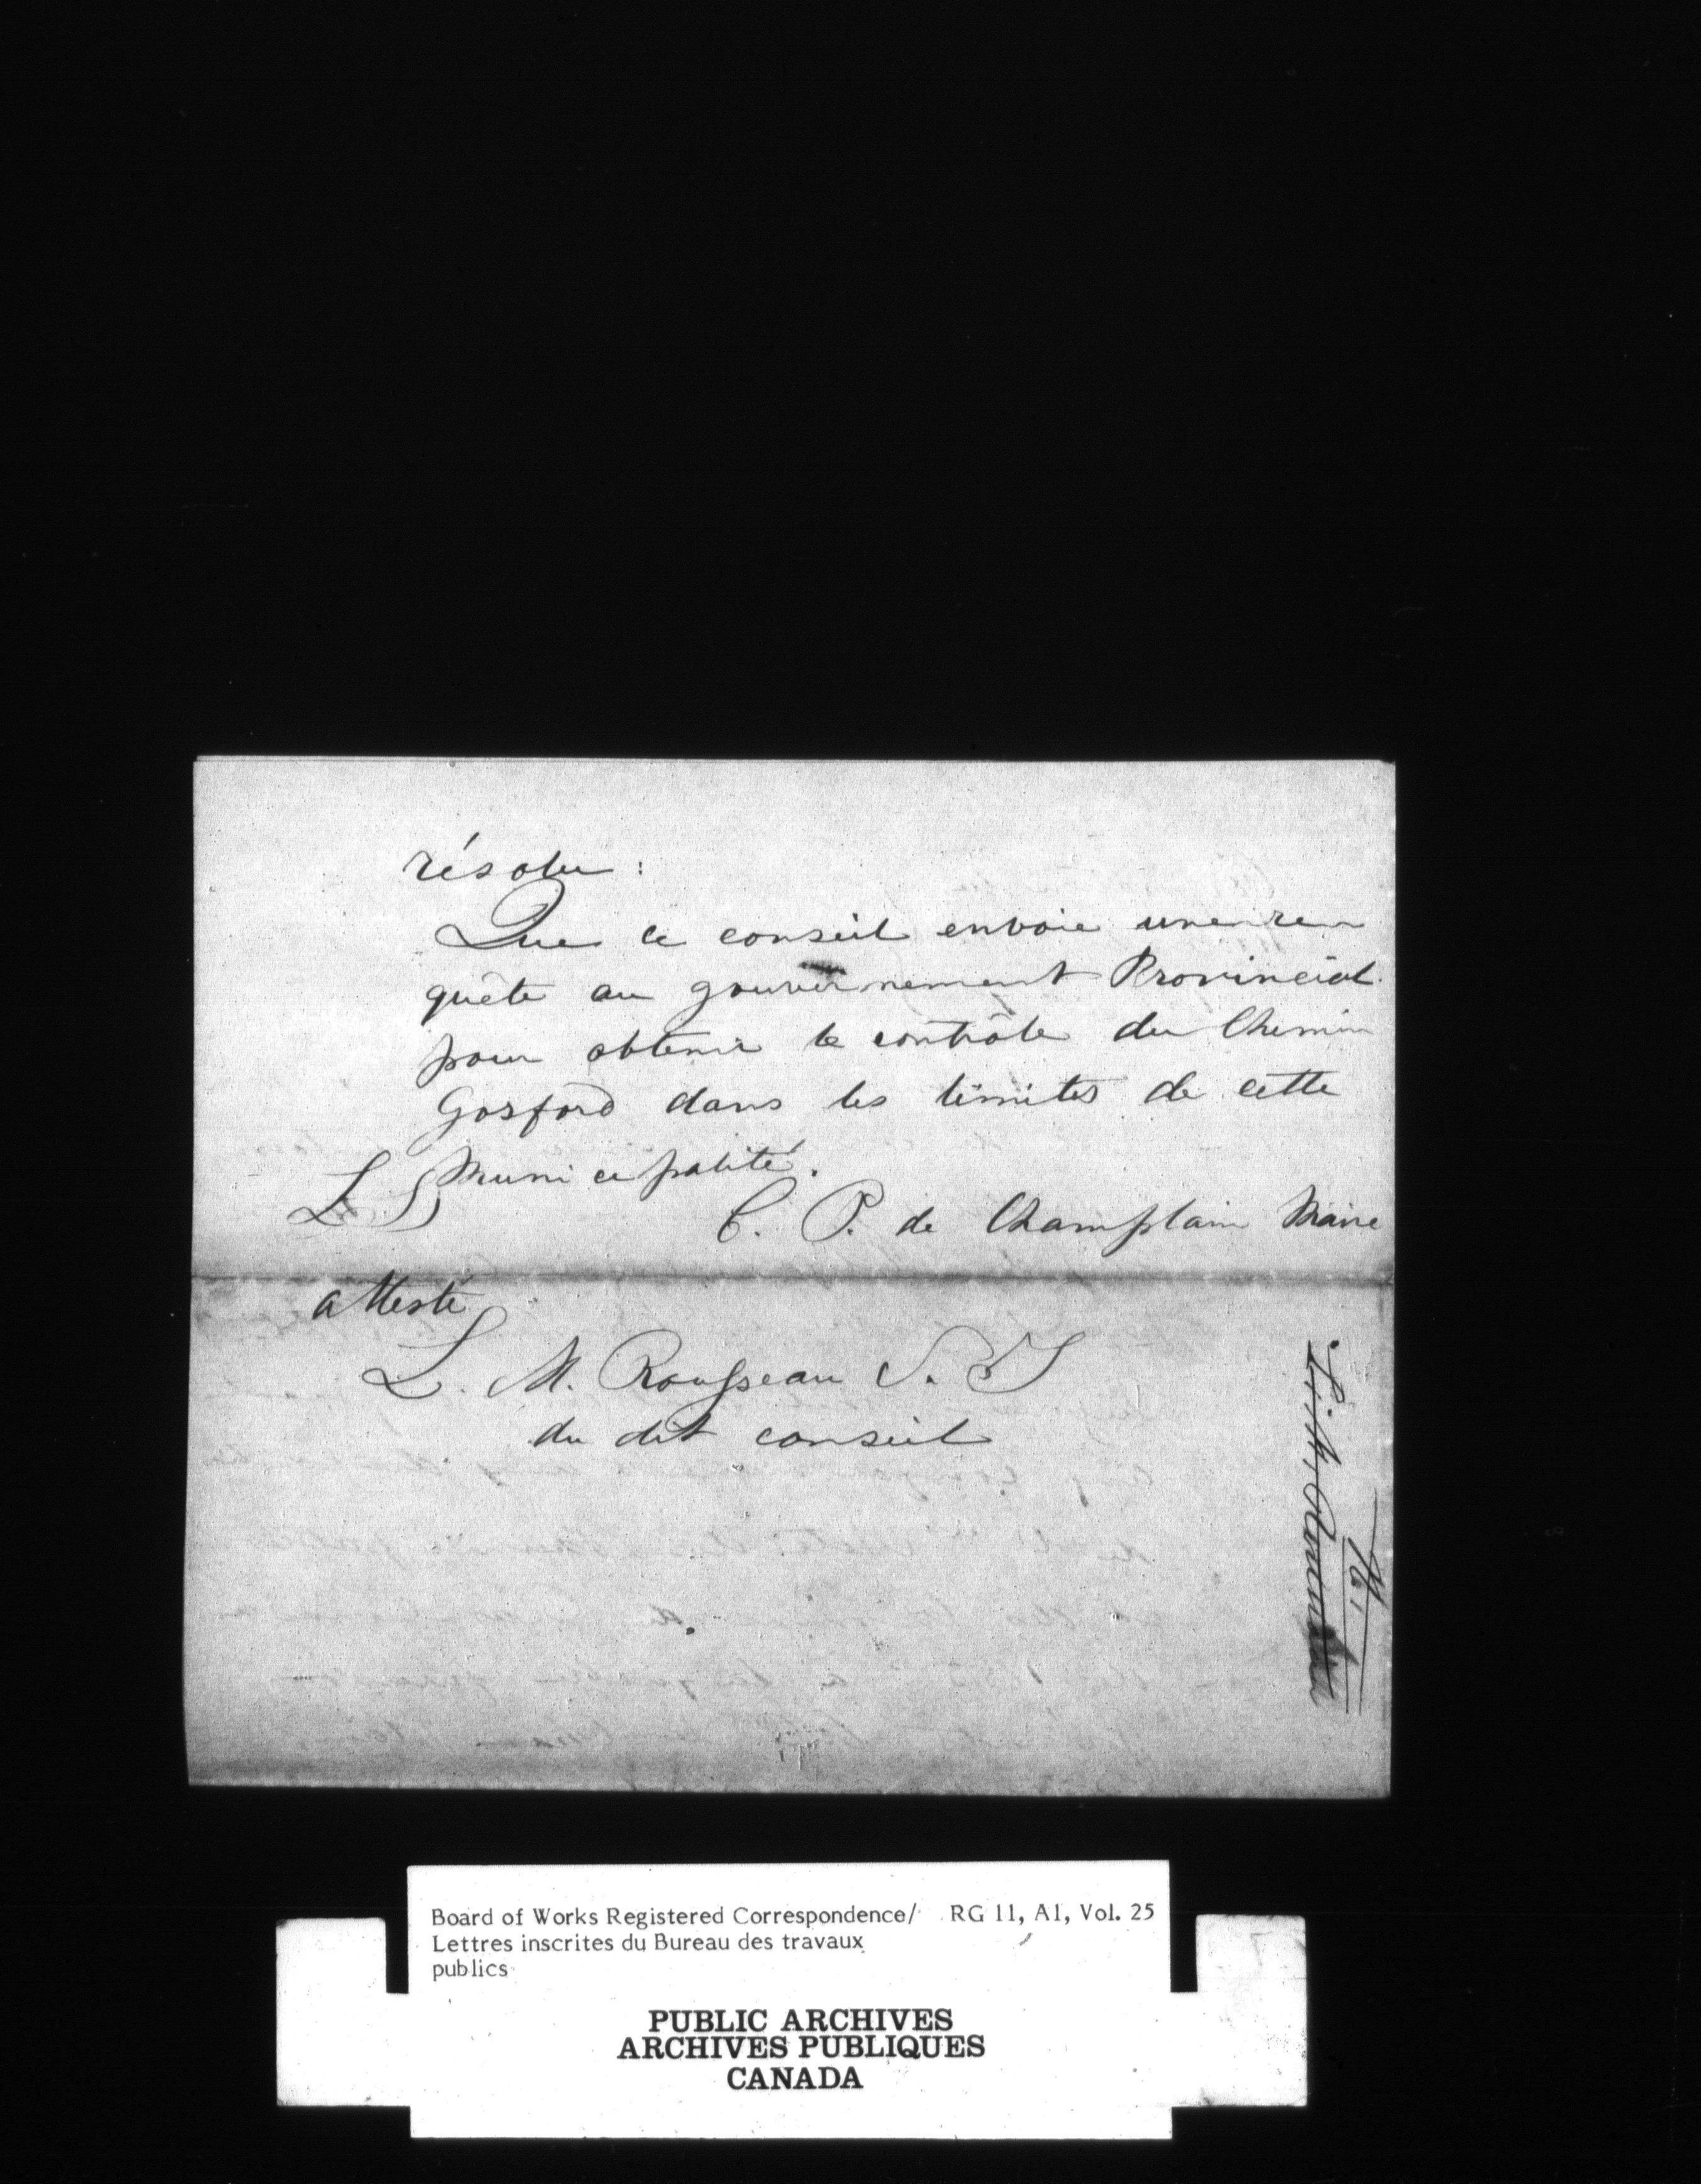 résolu :
Que ce conseil envoie une re
quête au gouvernement Provincial
pour obtenir le contrôle du Chemin
Gosford dans les limites de cette
Municipalité.
L S
C. P. de Champlain Maire
attesté
L. M. Rousseau S. T
du dit conseil
Board of Works Registered Correspondence/ RG 11, A1, Vol. 25
Lettres inscrites du Bureau des travaux
publics
PUBLIC ARCHIVES
ARCHIVES PUBLIQUES
CANADA